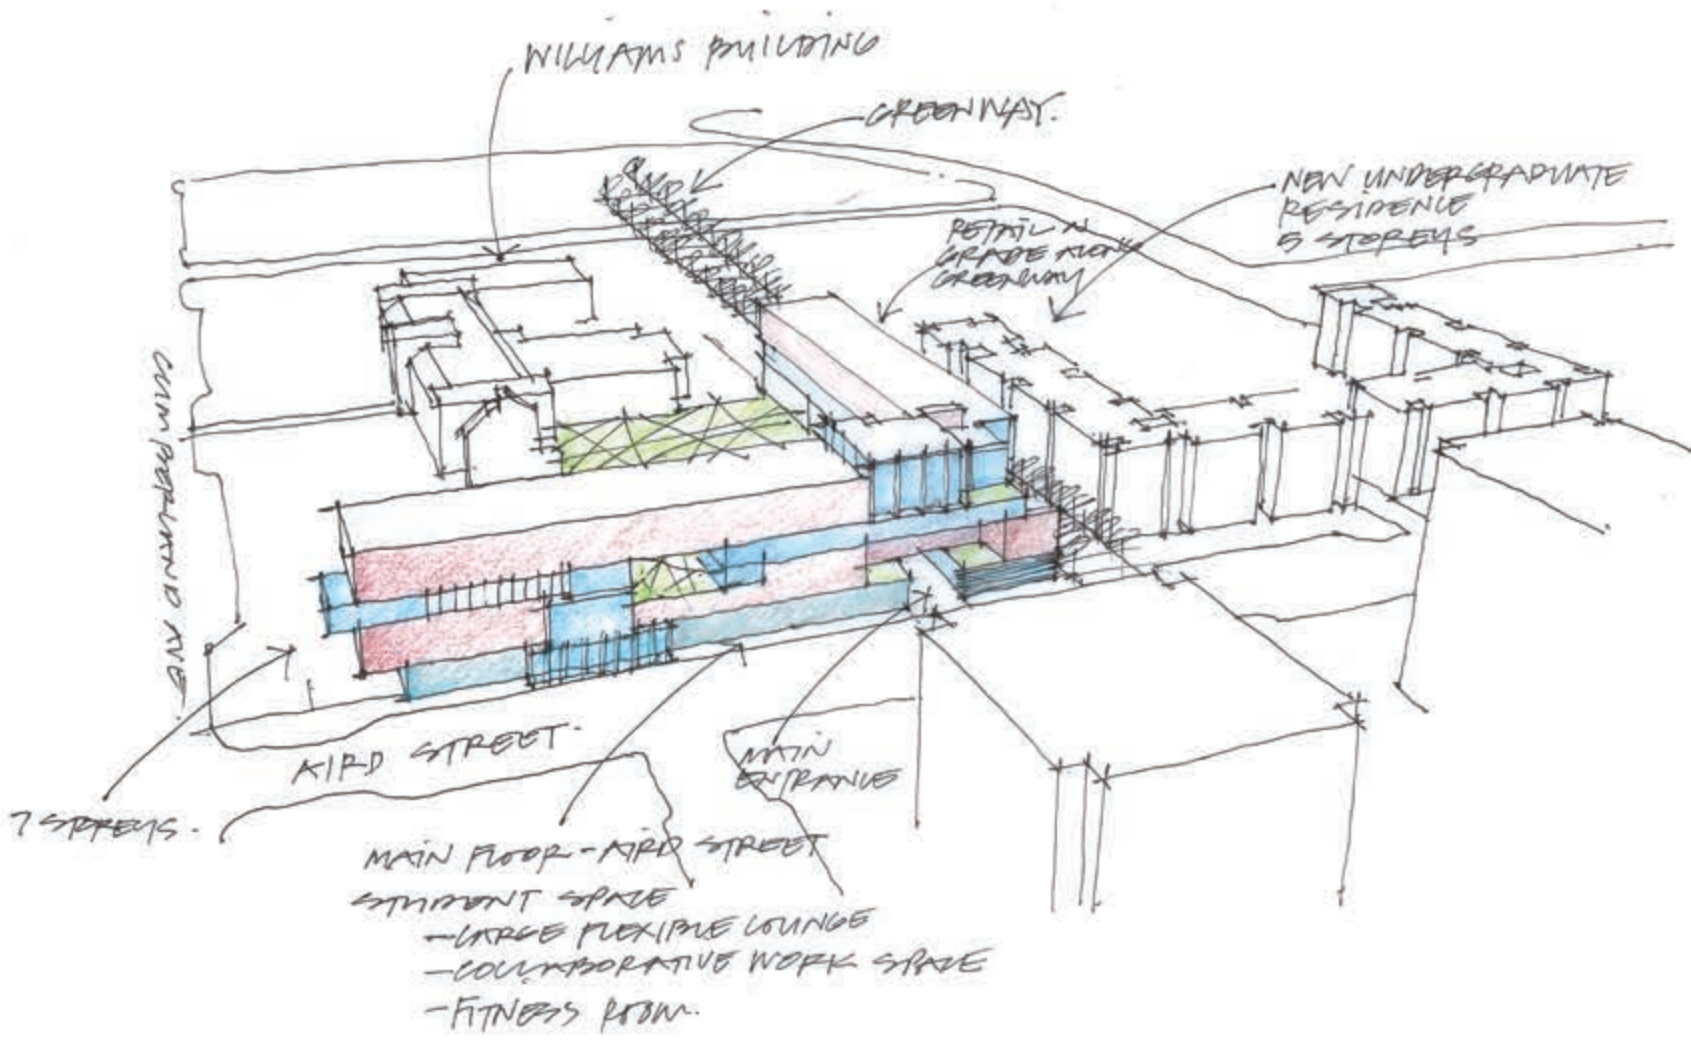 WILLIAMS BUILDING
GREENWAY.
NEW UNDERGRADUATE
RESIDENCE
5 STOREYS
RETAIL
GRADE ALONG
GREENWAY
CUMBERLAND AVE.
AIRD STREET.
7 STOREYS.
MAIN
ENTRANCE
MAIN FLOOR - AIRD STREET
STUDENT SPACE
- LARGE FLEXIBLE LOUNGE
- COLLABORATIVE WORK SPACE
- FITNESS ROOM.